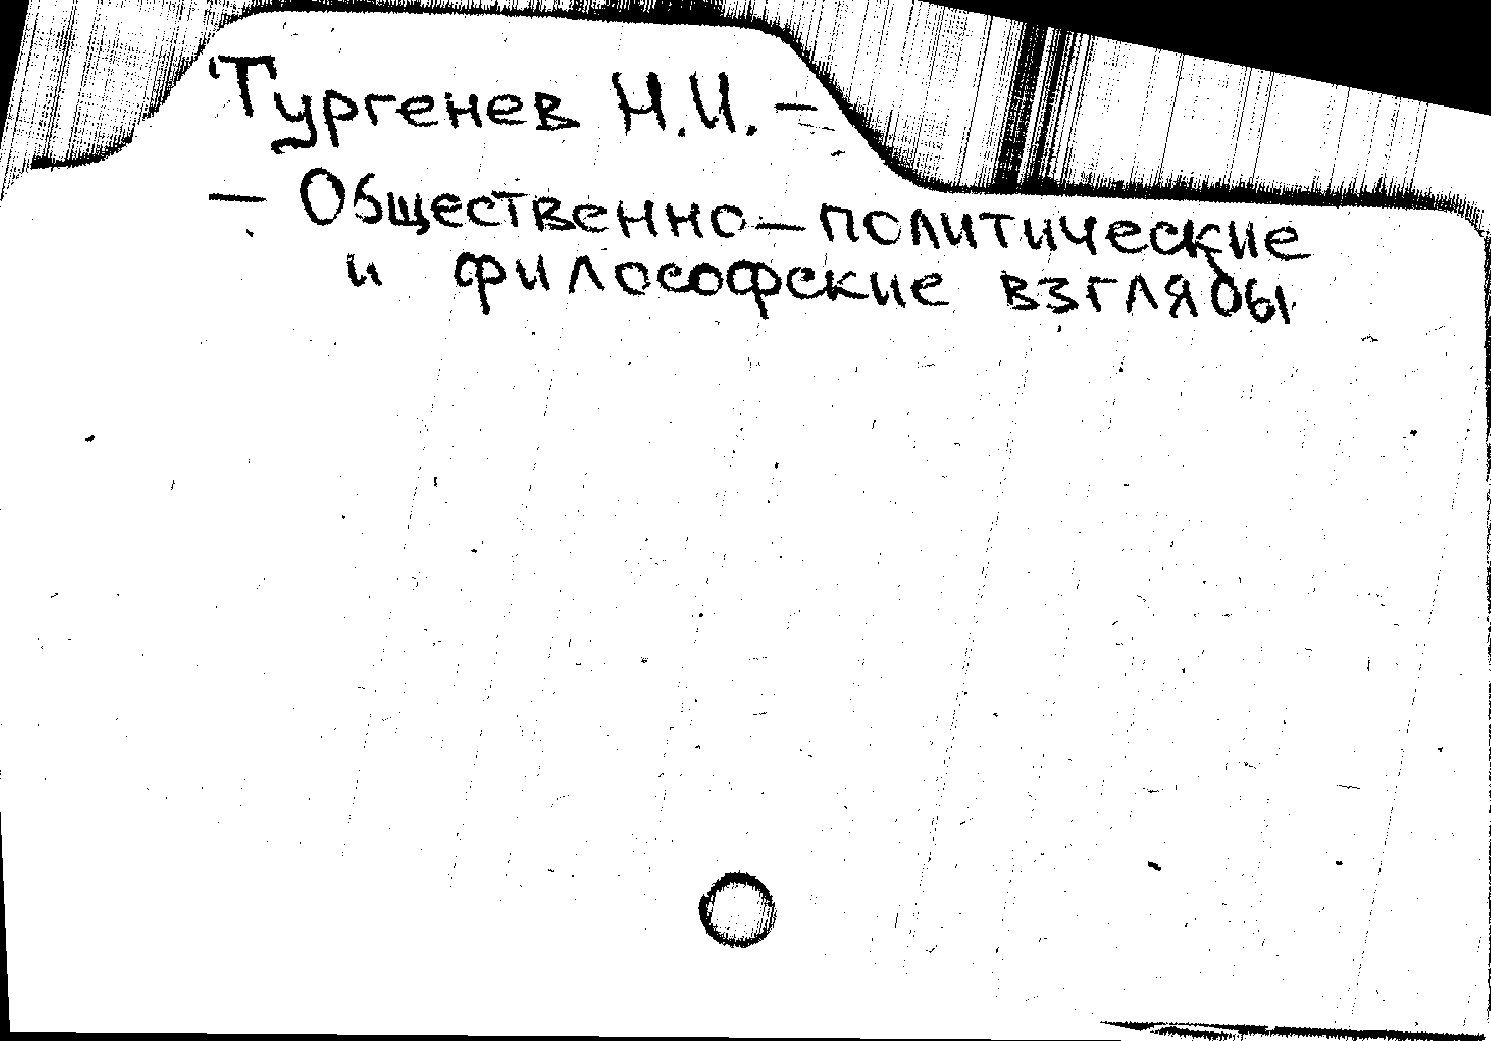 Тургенев Н.И. –
– Общественно-политические
и философские взгляды